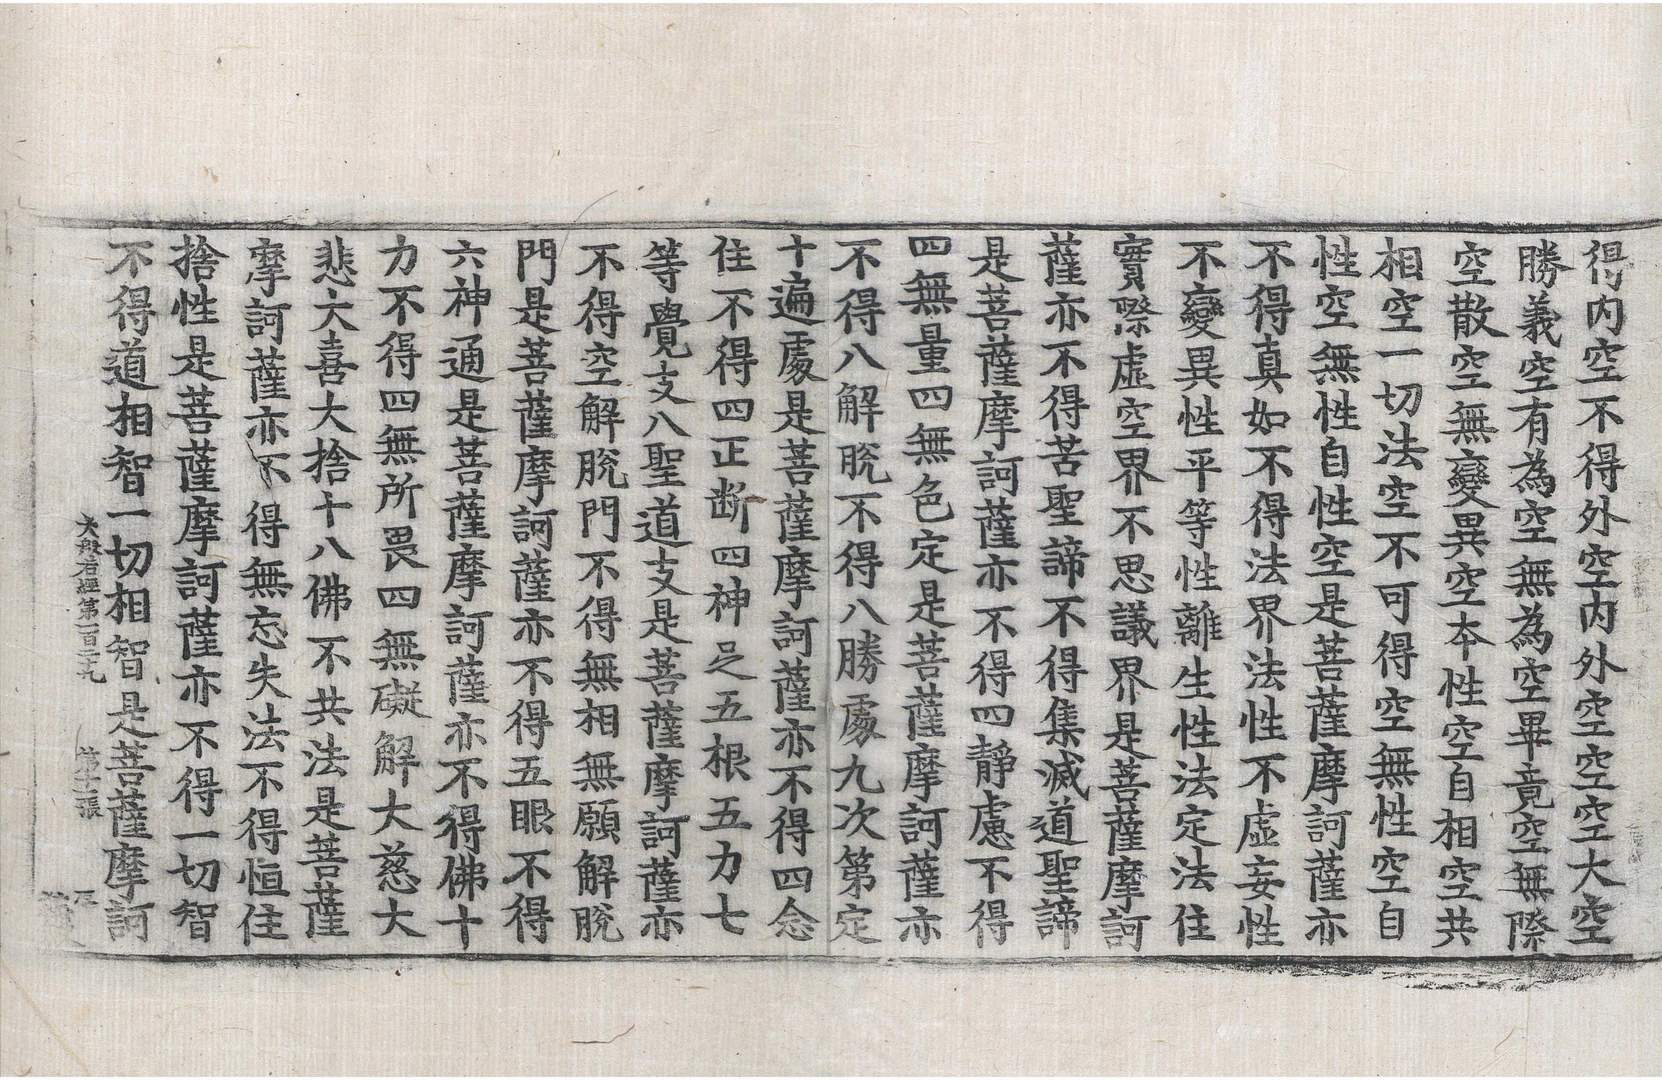 得内空不得外空内外空空空大空
勝義空有為空無為空畢竟空無際
空散空無變異空本性空自相空共
相空一切法空不可得空無性空自
性空無性自性空是菩薩摩訶薩亦
不得真如不得法界法性不虛妄性
不變異性平等性離生性法定法住
實際虛空界不思議界是菩薩摩訶
薩亦不得苦聖諦不得集滅道聖諦
是菩薩摩訶薩亦不得四靜慮不得
四無量四無色定是菩薩摩訶薩亦
不得八解脫不得八勝處九次第定
十遍處是菩薩摩訶薩亦不得四念
住不得四正断四神足五根五力七
等覺支八聖道支是菩薩摩訶薩亦
不得空解脫門不得無相無願解脫
門是菩薩摩訶薩亦不得五眼不得
六神通是菩薩摩訶薩亦不得佛十
力不得四無所畏四無礙解大慈大
悲大喜大捨十八佛不共法是菩薩
摩訶薩亦不得無忘失法不得恒住
捨性是菩薩摩訶薩亦不得一切智
不得道相智一切相智是菩薩摩訶
大般若經第一百二十九 張